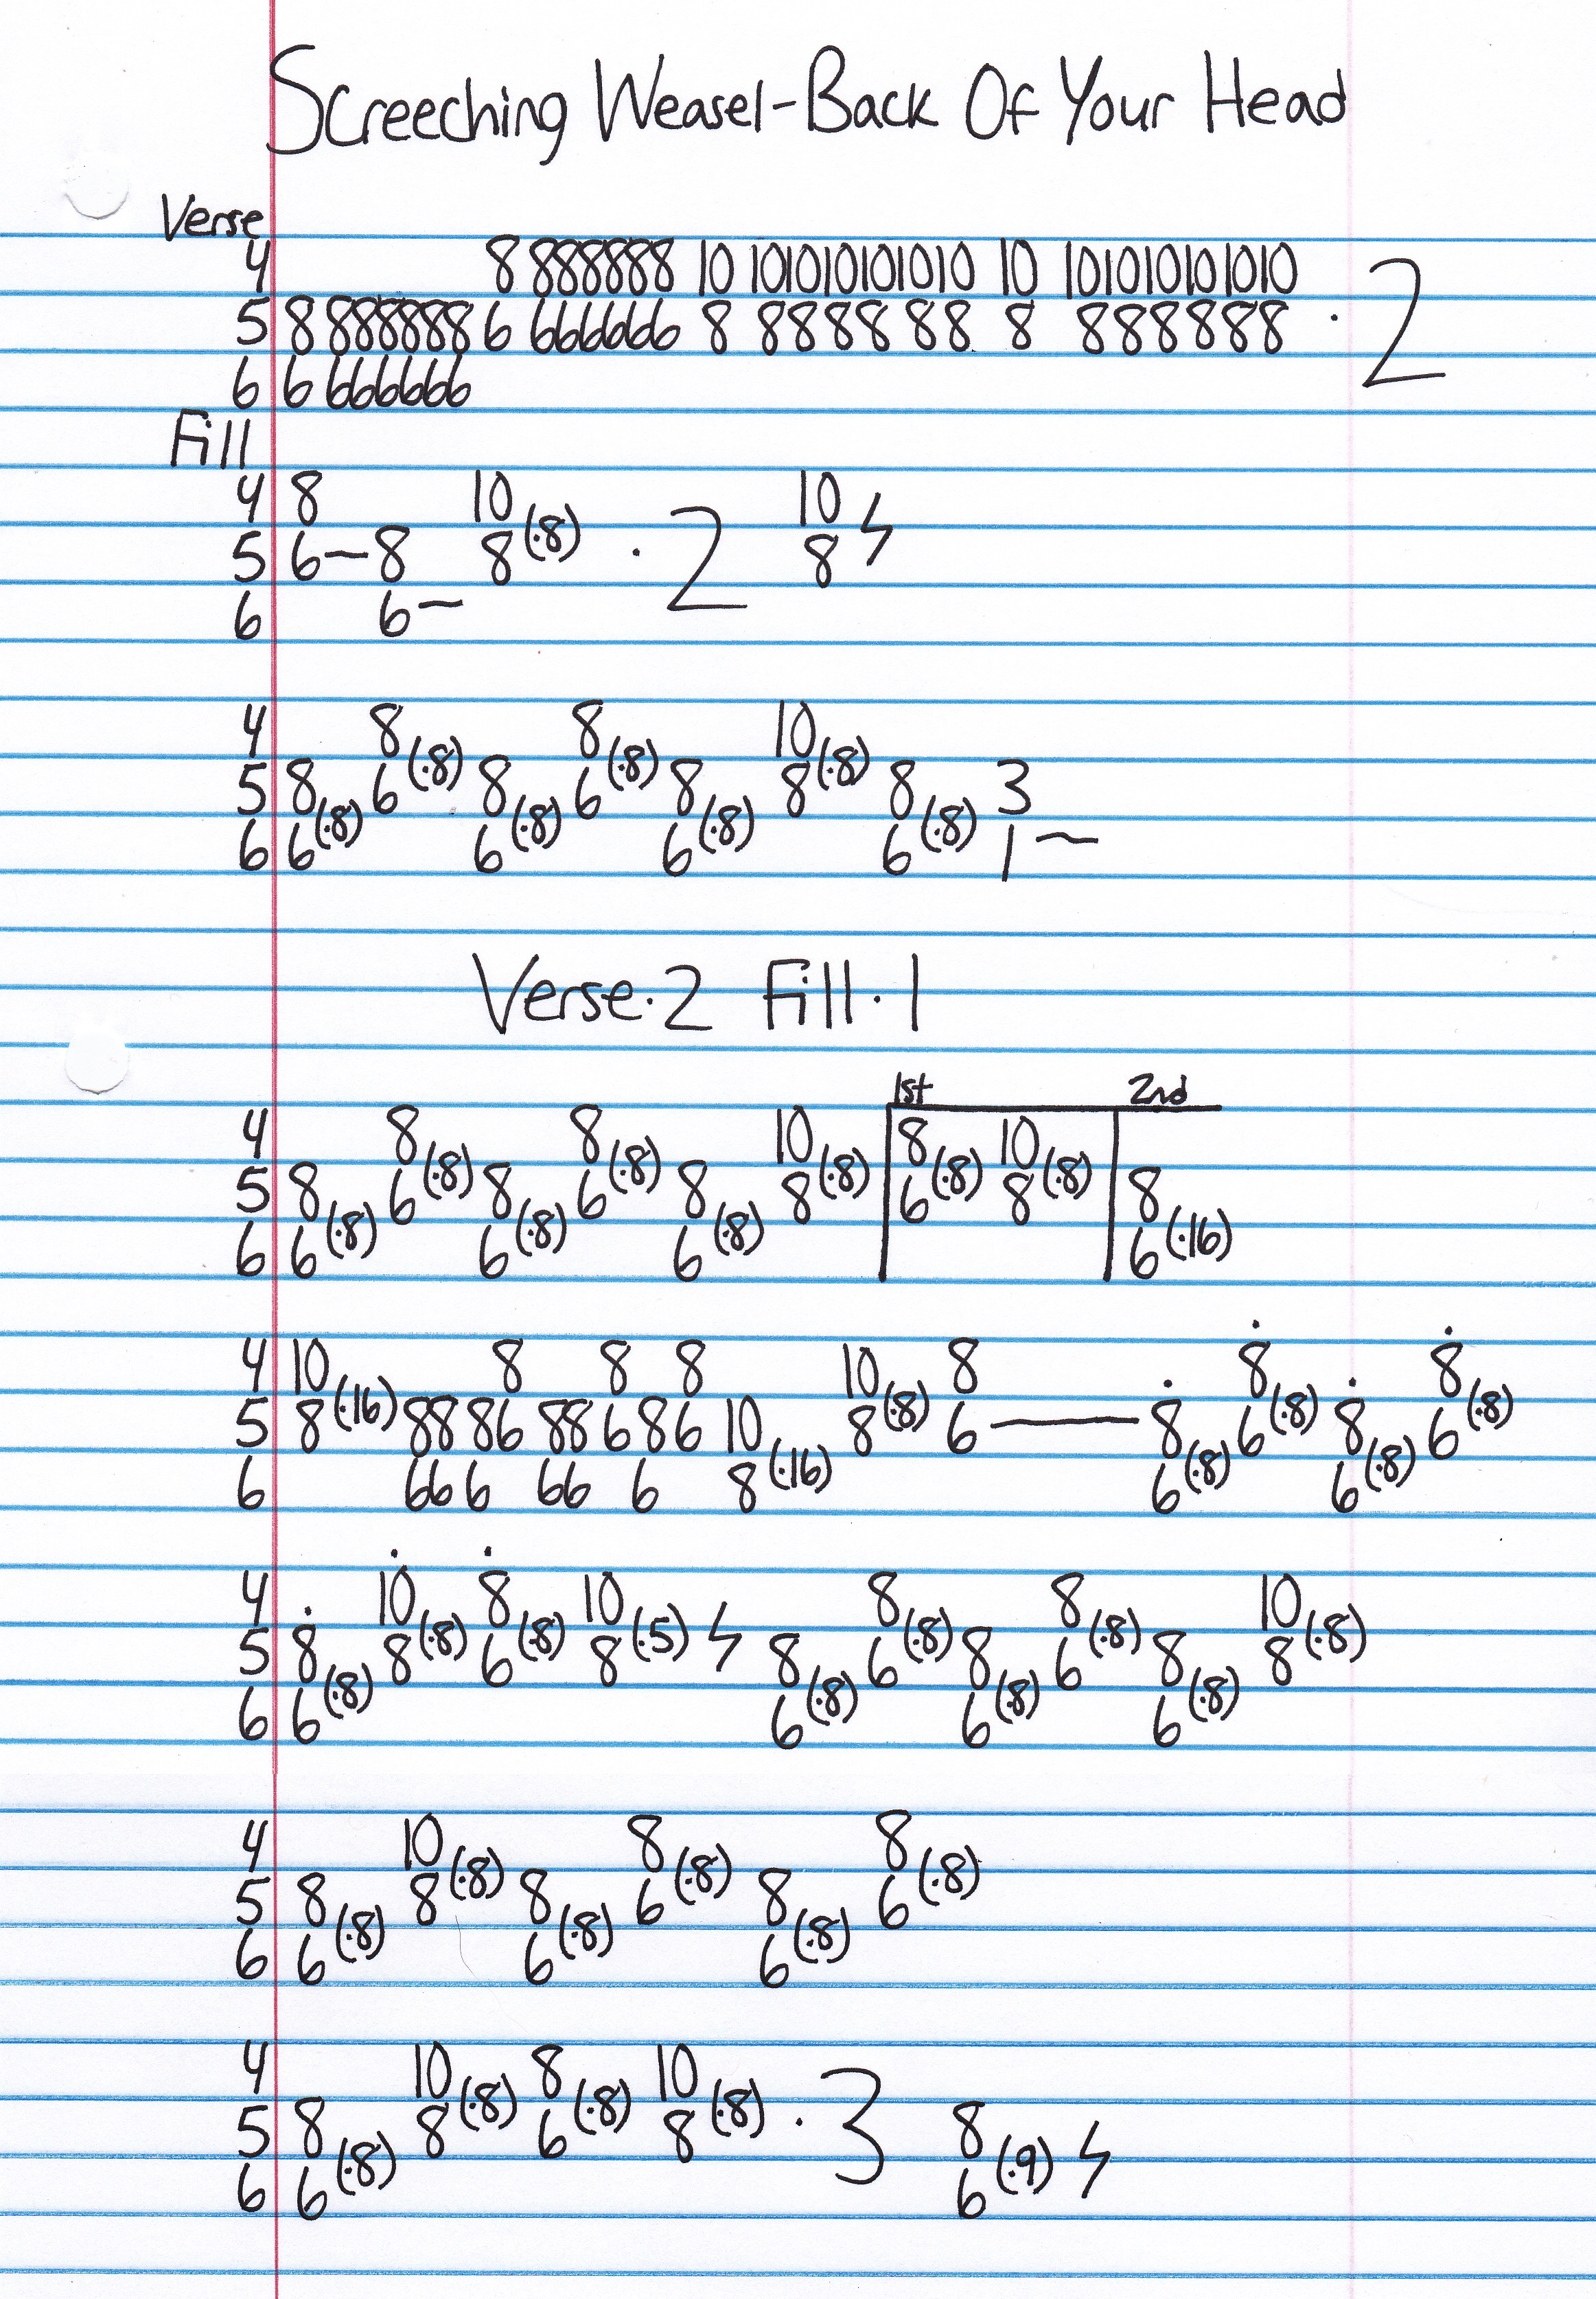 Screeching Weasel-Back Of Your Head
Verse
4 8 888888 10 101010101010 10 101010101010
5 8 888888 6 666666 8 888888 8 888888 ·2
6 6 666666
Fill
4 8 10 10
5 6~8 8(·8) ·2 8 ϟ
6 6~
4 8 8 10
5 8 6(·8) 8 6(·8) 8 8(·8) 8 3
6 6(·8) 6(·8) 6(·8) 6(·8) 1~
Verse·2 Fill·1
1st 2nd
4 8 8 10 8 10
5 8 6(·8) 8 6(·8) 8 8(·8) 6(·8) 8(·8) 8
6 6(·8) 6(·8) 6(·8) 6(·16)
4 10 8 8 8 10 8 8 8
5 8(·16) 88 86 88 6 86 10 8(·8) 6— 8 6(·8) 8 6(·8)
6 66 6 66 6 8(·16) 6(·8) 6(·8)
4 10 8 10 8 8 10
5 8 8(·8) 6(·8) 8(·5) ϟ 8 6(·8) 8 6(·8) 8 8(·8)
6 6(·8) 6(·8) 6(·8) 6(·8)
4 10 8 8
5 8 8(·8) 8 6(·8) 8 6(·8)
6 6(·8) 6(·8) 6(·8)
4 10 8 10
5 8 8(·8) 6(·8) 8(·8) ·3 8
6 6(·8) 6(·9) ϟ